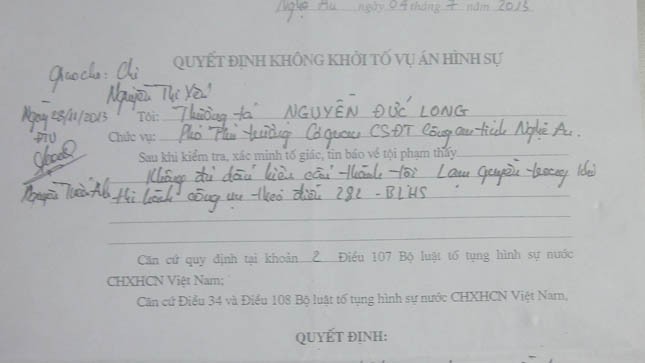 Nghệ An ngày 04 tháng 7 năm 2013
QUYẾT ĐỊNH KHÔNG KHỞI TỐ VỤ ÁN HÌNH SỰ
Giao cho: Chị
Nguyễn Thị Yến
Ngày 28/11/2013
ĐTV
Nguyễn Tuấn Anh
Tôi: Thượng tá NGUYỄN ĐỨC LONG
Chức vụ: Phó Thủ trưởng Cơ quan CSĐT Công an tỉnh Nghệ An.
Sau khi kiểm tra, xác minh tố giác, tin báo về tội phạm thấy
Không đủ dấu hiệu cấu thành tội Lạm quyền trong khi
thi hành công vụ theo điều 282 - BLHS
Căn cứ quy định tại khoản 2 Điều 107 Bộ luật tố tụng hình sự nước
CHXHCN Việt Nam;
Căn cứ Điều 34 và Điều 108 Bộ luật tố tụng hình sự nước CHXHCN Việt Nam,
QUYẾT ĐỊNH: